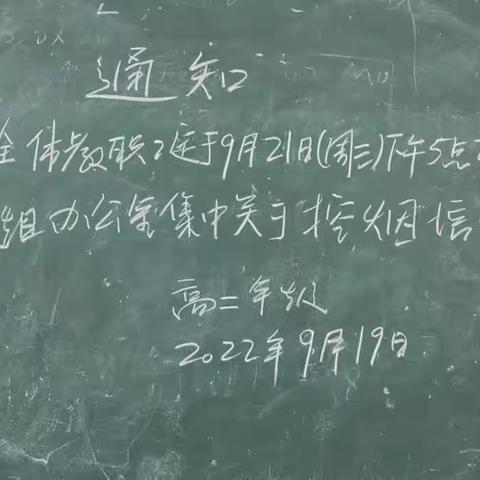 通知
全体教职工定于9月21日(周三)下午5点
组办公室集中关于控烟信
高二年级
2022年9月19日